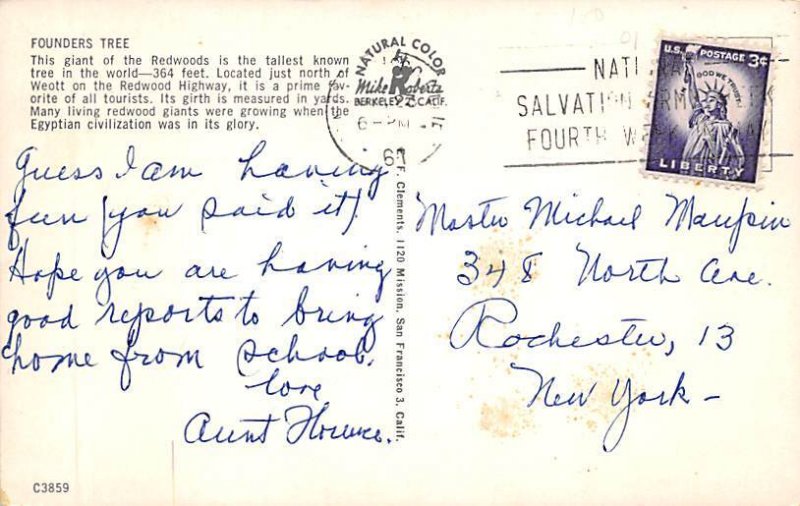 FOUNDERS TREE
This giant of the Redwoods is the tallest known
tree in the world—364 feet. Located just north of
Weott on the Redwood Highway, it is a prime fav-
orite of all tourists. Its girth is measured in yards.
Many living redwood giants were growing when the
Egyptian civilization was in its glory.
NATURAL COLOR
Mike Roberts
BERKELEY 2, CALIF.
6-PM
SALVATION ARMY
FOURTH MAY
U.S. POSTAGE 3¢
IN GOD WE TRUST
LIBERTY
Guess I am having
fun (you said it).
Hope you are having
good reports to bring
home from school.
love
Aunt Florence.
F. Clements, 1120 Mission, San Francisco 3, Calif.
Master Michael Maupin
348 North Ave.
Rochester, 13
New York -
C3859